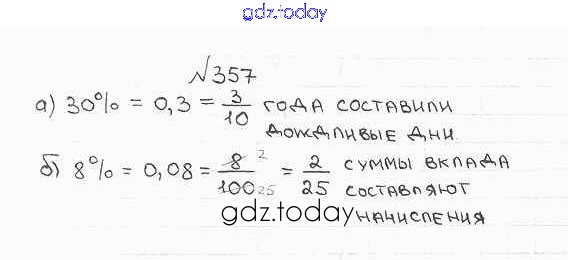 gdz.today
№357
а) 30% = 0,3 = 3/10 года составили
дождливые дни.
б) 8% = 0,08 = 8 2/100 25 = 2/25 суммы вклада
составляют
gdz.today начисления